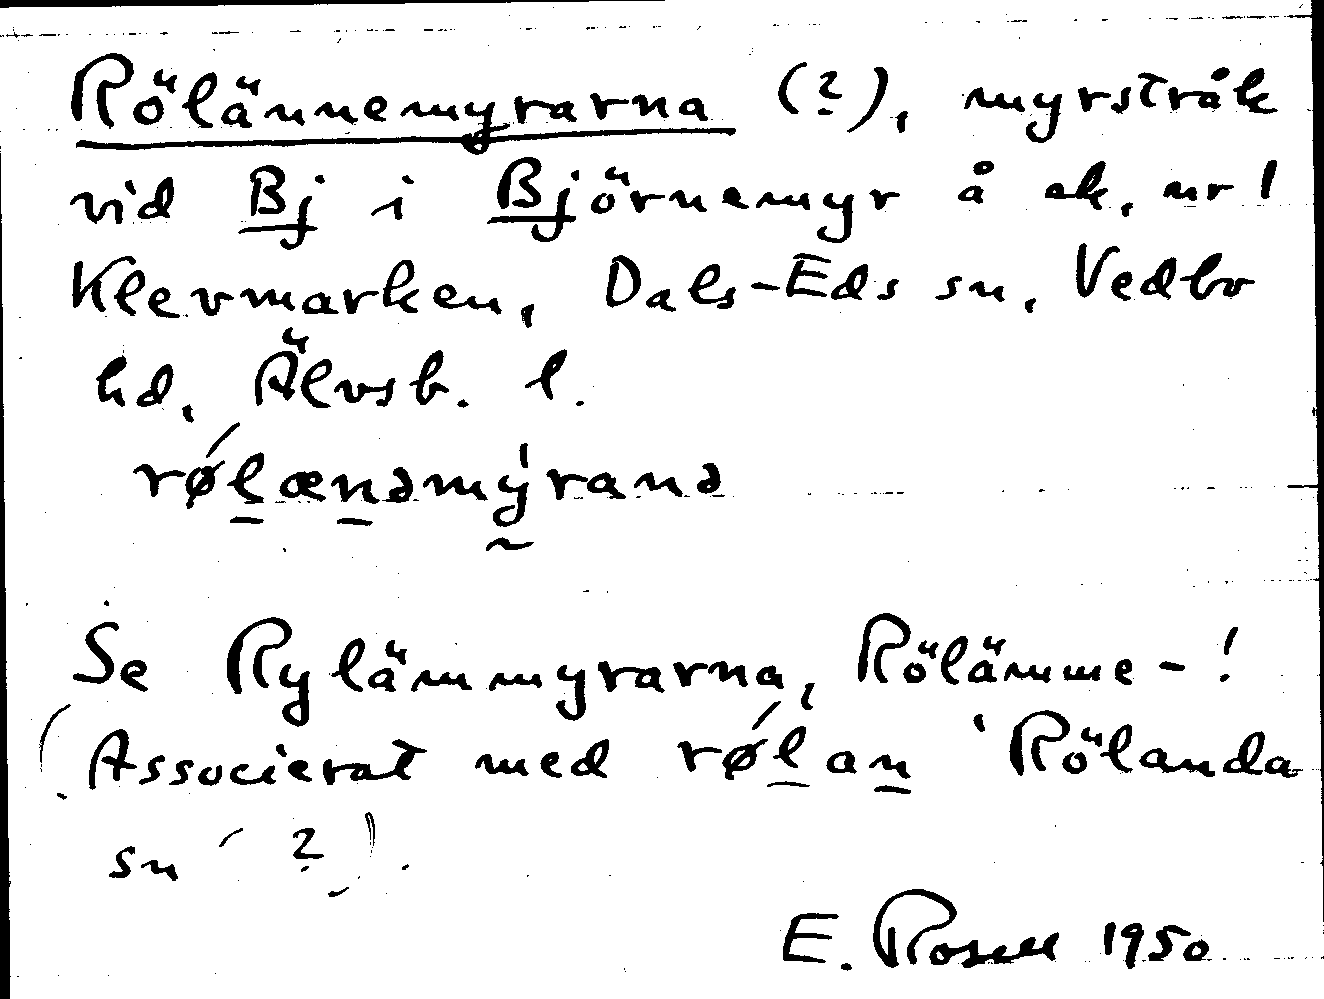 Rölännemyrarna (?), myrstråk
vid Bj i Björnemyr å ek. nr 1
Klevmarken, Dals-Eds sn, Vedbo
hd, Älvsb. l.
rǿlænəmýranə
Se Rylämmyrarna, Rölämme-!
(Associerat med rǿlan ‛Rölanda
sn’ ?).
E. Rosell 1950